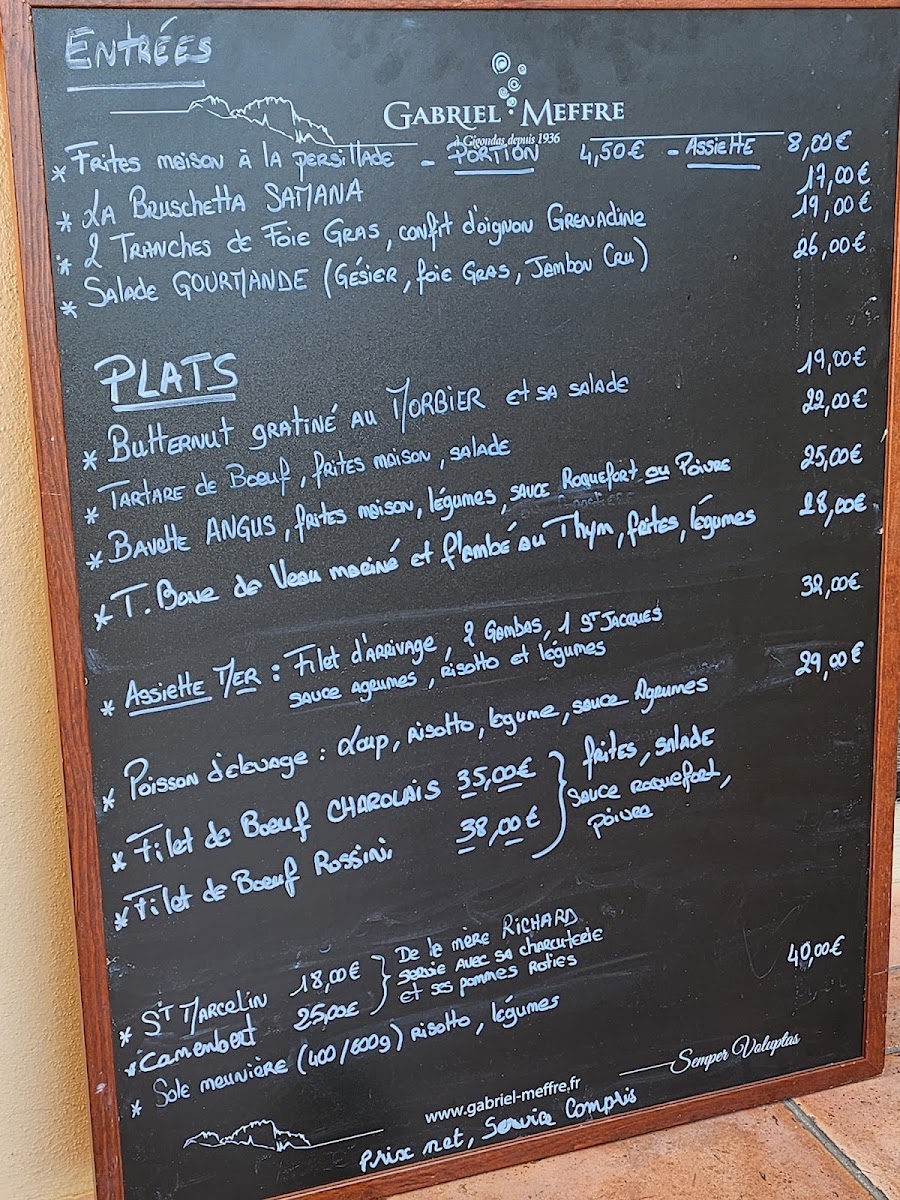 ENTRÉES
GABRIEL MEFFRE
à Gigondas depuis 1936
* FRITES maison à la persillade - PORTION 4,50€ - Assiette 8,00€
* LA BRUSCHETTA SAMANA 17,00€
* 2 TRANCHES de Foie GRAS, confit d'oignon GRENADINE 19,00€
* SALADE GOURMANDE (GÉSIER, foie GRAS, JAMBON CRU) 26,00€
PLATS
* BUTTERNUT GRATINÉ AU MORBIER et SA SALADE 19,00€
* TARTARE de Boeuf, frites maison, SALADE 22,00€
* BAVETTE ANGUS, frites maison, légumes, SAUCE Roquefort ou Poivre 25,00€
* T. Bone de Veau mariné et flambé au Thym, frites, légumes 28,00€
* Assiette MER : Filet d'ARRIVAGE, 2 Gambas, 1 ST JACQUES 32,00€
SAUCE AGRUMES, RISOTTO et légumes
* Poisson d'élevage : Loup, risotto, légume, sauce Agrumes 29,00€
* Filet de Boeuf CHAROLAIS 35,00€
* Filet de Boeuf Rossini 38,00€
frites, SALADE
Sauce ROQUEFORT,
POIVRE
* ST MARCELIN 18,00€
* Camembert 25,00€
De la mère RICHARD
servie AVEC SA CHARCUTERIE
et ses pommes Roties
* Sole meunière (400/600g) risotto, légumes 40,00€
Semper Voluptas
www.gabriel-meffre.fr
Prix net, Service Compris